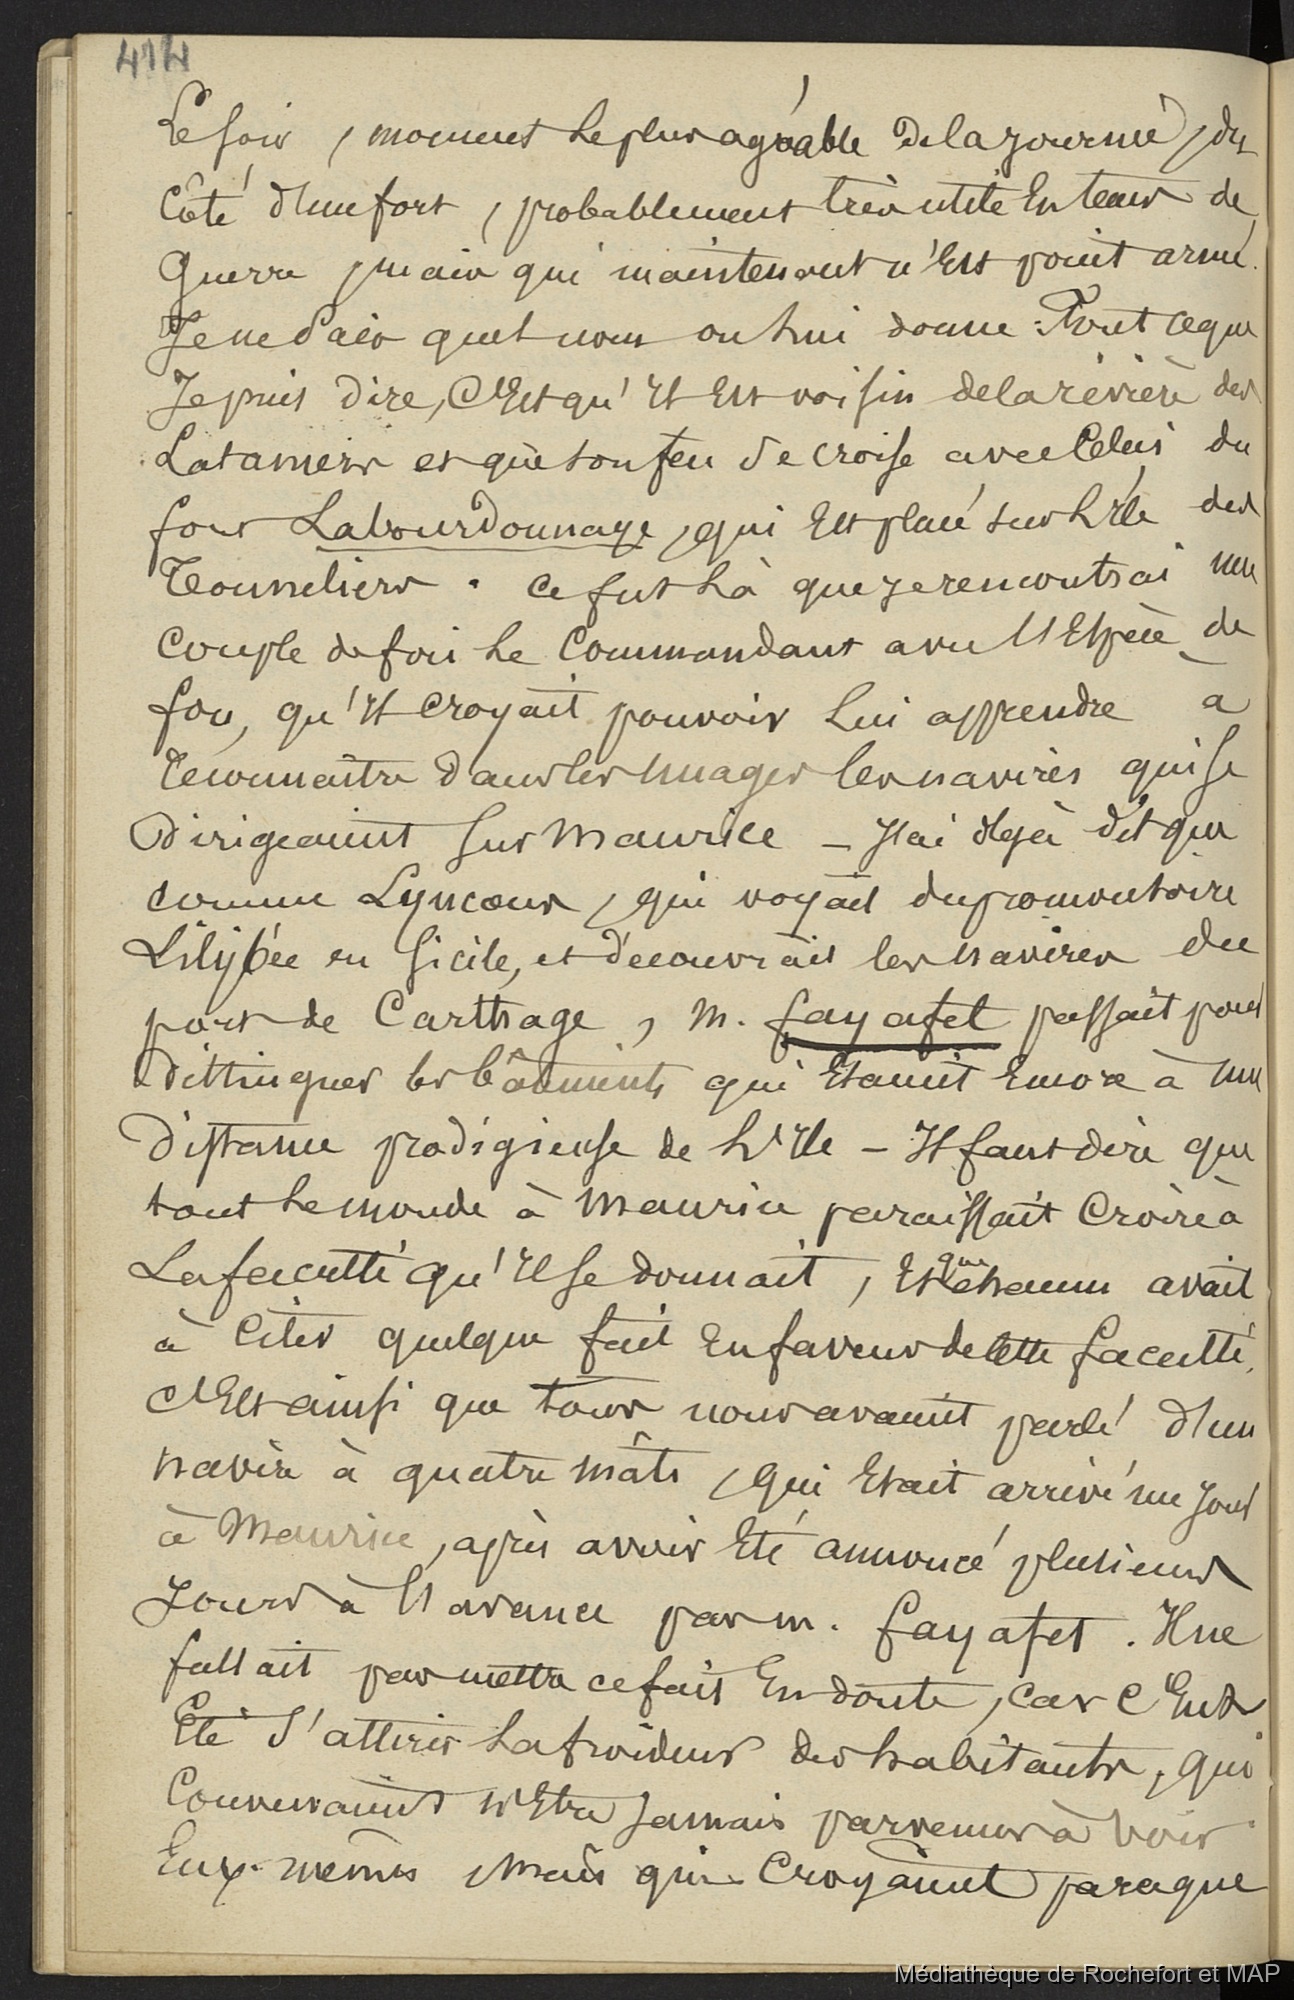 414
Le soir, moment le plus agréable de la journée, du
côté d'un fort, probablement très utile en temps de
guerre, mais qui maintenant n'est point armé.
Je ne sais quel nom on lui donne. Tout ce que
Je puis dire, C'est qu'il est voisin de la rivière des
Lataniers et que son feu se croise avec Celui du
fort Labourdonnaye, qui est placé sur l'île des
Tonneliers. Ce fut là que je rencontrai une
couple de fois le Commandant avec l'espèce de
fou, qu'il croyait pouvoir lui apprendre à
reconnaître dans les nuages les navires qui se
dirigeaient sur Maurice – J'ai déjà dit que
comme Lynceus, qui voyait du promontoire
Lilybée en Sicile, et découvrait les navires du
port de Carthage, M. fayafet passait pour
distinguer les bâtiments qui étaient encore à une
distance prodigieuse de l'île – Il faut dire que
tout le monde à Maurice paraissait Croire à
La faculté qu'il se donnait, et que chacun avait
à citer quelque fait en faveur de cette faculté.
C'est ainsi que tous nous avaient parlé d'un
navire à quatre mâts, qui était arrivé un jour
à Maurice, après avoir été annoncé plusieurs
jours à l'avance par M. fayafet. Il ne
fallait pas mettre ce fait en doute, car c'eut
Eté s'attirer la froideur des habitants, qui
Convenaient n'être jamais parvenus à voir
Eux-mêmes, Mais qui Croyaient parce que
Médiathèque de Rochefort et MAP